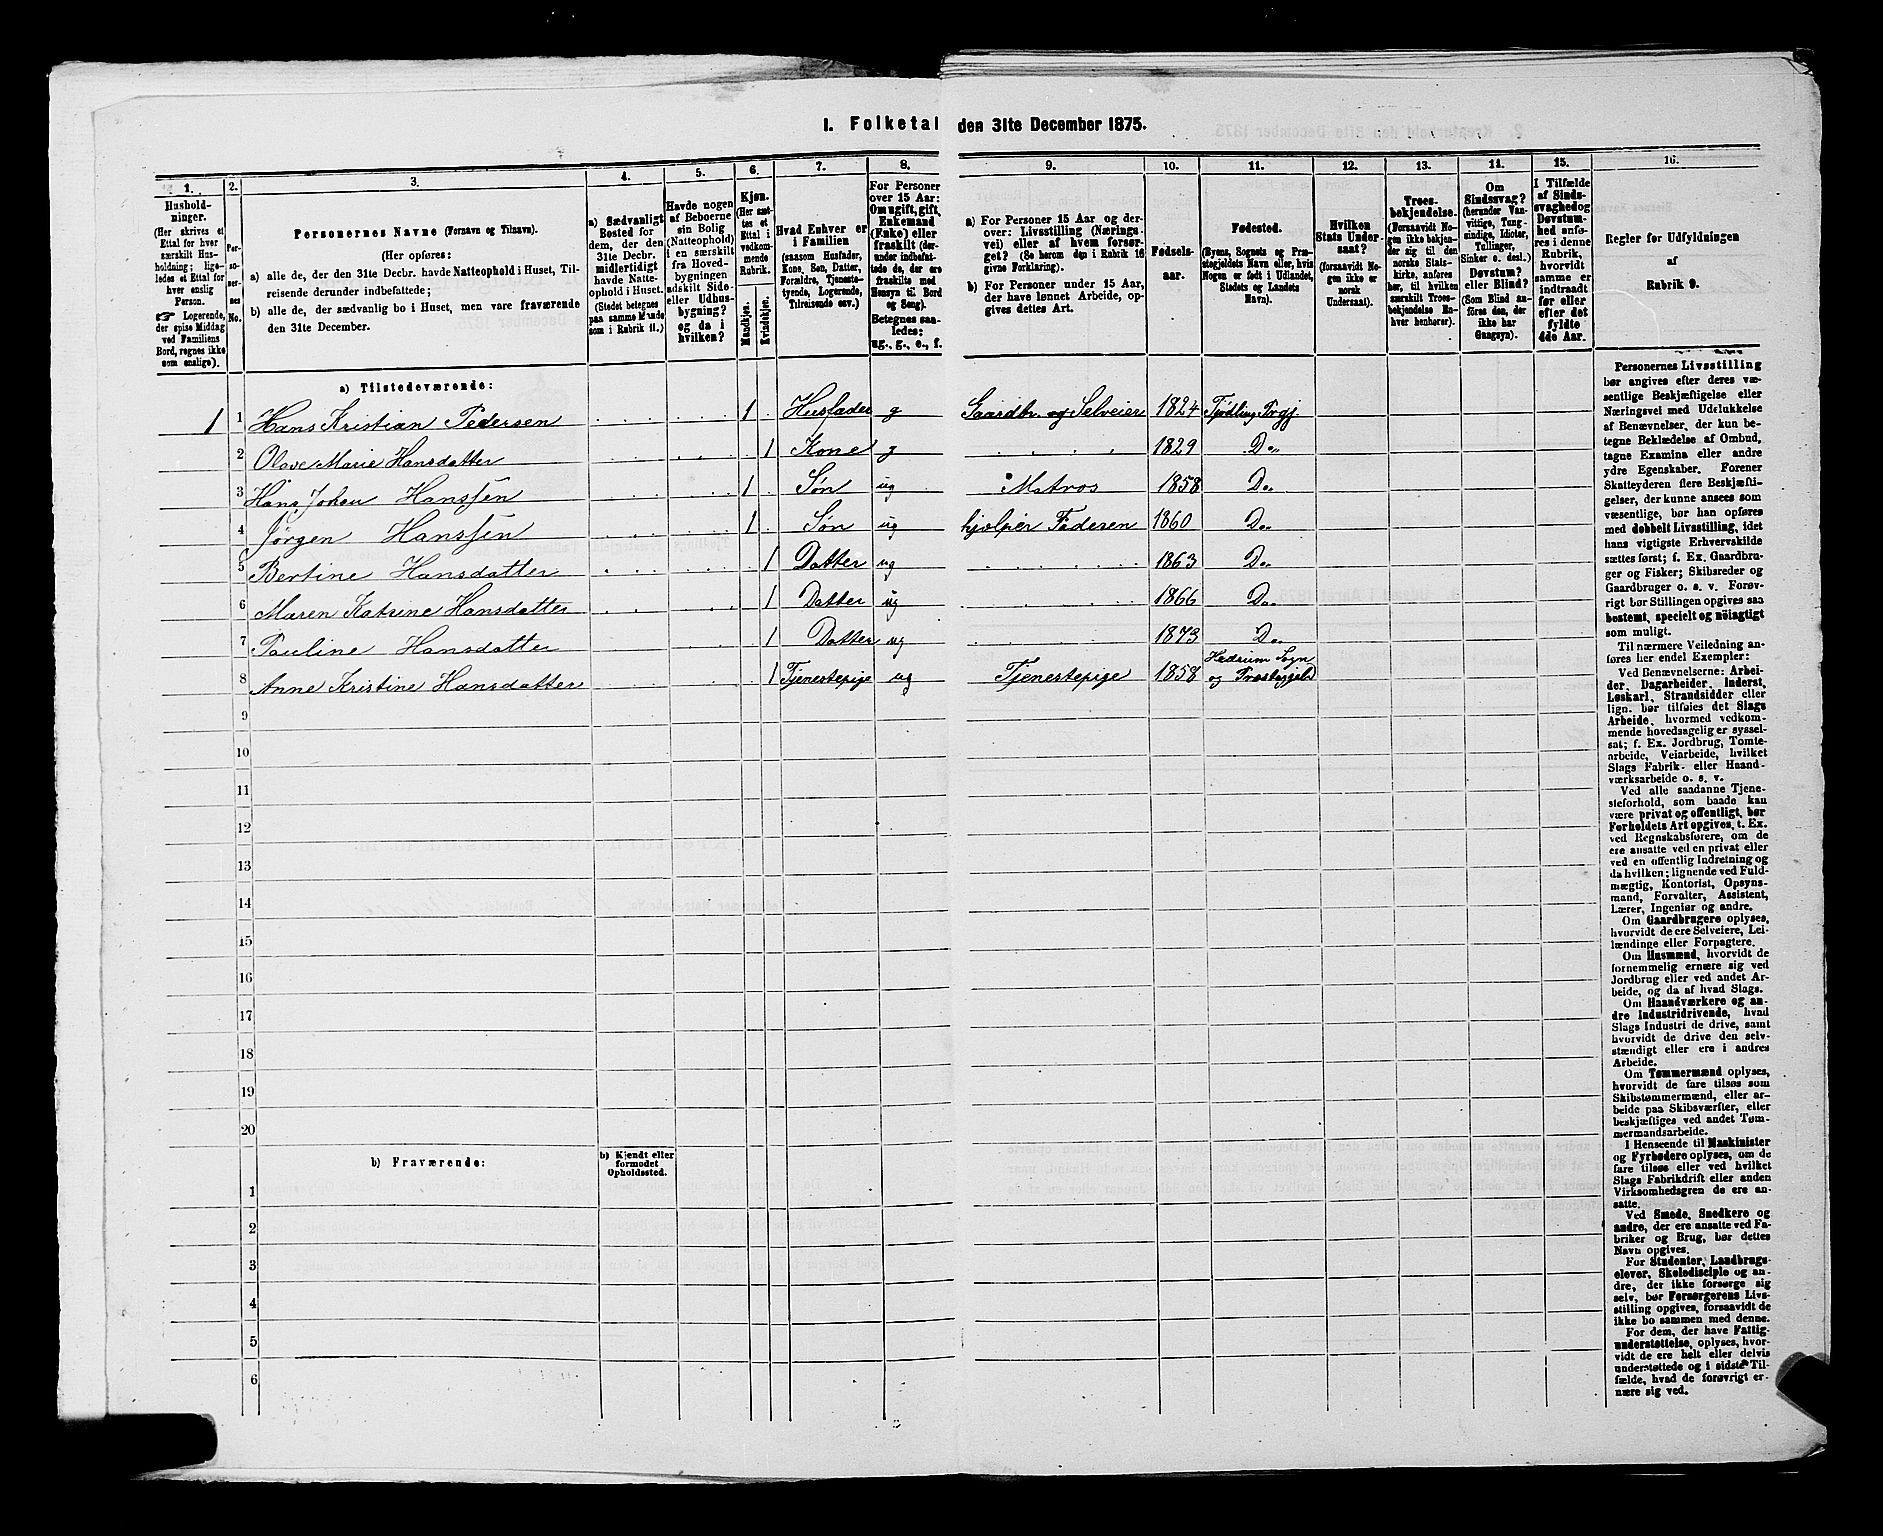 I. Folketal den 31te December 1875.
1.
2.
3.
4.
5.
6.
7.
8.
9.
10.
11.
12.
13.
14.
15.
16.
Hushold-
ninger.
(Her skrives et
Ettal for hver
særskilt Hus-
holdning; lige-
ledes et Ettal for
hver enslig
Person.
☞ Logerende,
der spise Middag
ved Familiens
Bord, regnes ikke
som enslige).
Per-
so-
ner-
nes
No.
Personernes Navne (Fornavn og Tilnavn).
(Her opføres:
a) alle de, der den 31te Decbr. havde Natteophold i Huset, Til-
reisende derunder indbefattede;
b) alle de, der sædvanlig bo i Huset, men vare fraværende
den 31te December.
a) Sædvanligt
Bosted for
dem, der den
31te Decbr.
midlertidigt
havde Natte-
ophold i Huset.
(Stedet betegnes
paa samme Maade
som i Rubrik 11.)
Havde nogen
af Beboerne
sin Bolig
(Natteophold)
i en særskilt
fra Hoved-
bygningen
adskilt Side-
eller Udhus-
bygning?
og da i
hvilken?
Kjøn.
(Her sæt-
tes et
Ettal i
vedkom-
mende
Rubrik.
Mandkjøn.
Kvindekjøn.
Hvad Enhver er
i Familien
(saasom Husfader,
Kone, Søn, Datter,
Forældre, Tjeneste-
tyende, Logerende,
Tilreisende osv.)
For Personer
over 15 Aar:
Om ugift, gift,
Enkemand
(Enke) eller
fraskilt (der-
under indbefat-
tede de, der ere
fraskilte med
Hensyn til Bord
og Seng).
Betegnes saa-
ledes:
ug., g., e., f.
a) For Personer 15 Aar og der-
over: Livsstilling (Nærings-
vei) eller af hvem forsør-
get? (Se herom den i Rubrik 16
givne Forklaring).
b) For Personer under 15 Aar,
der have lønnet Arbeide, op-
gives dettes Art.
Fødsels-
aar.
Fødested.
(Byens, Sognets og Præ-
stegjeldets Navn eller, hvis
Nogen er født i Udlandet,
Stedets og Landets
Navn).
Hvilken
Stats Under-
saat?
(forsaavidt No-
gen ikke er
norsk
Undersaat).
Troes-
bekjendelse.
(Forsaavidt No-
gen ikke bekjen-
der sig til den
norske Stats-
kirke, anføres
her, til hvilken
særskilt Troes-
bekjendelse En-
hver henhører).
Om
Sindssvag?
(herunder Van-
vittige, Tung-
sindige, Idioter,
Tullinger,
Sinker o. desl.)
Døvstum?
eller Blind?
(Som Blind an-
føres den, der
ikke har
Gangsyn).
I Tilfælde
af Sinds-
svaghed og
Døvstum-
hed anfø-
res i denne
Rubrik,
hvorvidt
samme er
indtraadt
før eller
efter det
fyldte
4de Aar.
Regler for Udfyldningen
af
Rubrik 9.
a) Tilstedeværende:
1 1 Hans Kristian Pedersen 1 Husfader g Gaardbr. og Selveier 1824 Tjødling Prgj.
2 Olave Marie Hansdatter 1 Kone g 1829 Do.
3 Hans Johan Hanssen 1 Søn ug Matros 1858 Do.
4 Jørgen Hanssen 1 Søn ug hjælper Faderen 1860 Do.
5 Bertine Hansdatter 1 Datter ug 1863 Do.
6 Maren Katrine Hansdatter 1 Datter ug 1866 Do.
7 Pauline Hansdatter 1 Datter ug 1873 Do.
8 Anne Kristine Hansdatter 1 Tjenestepige ug Tjenestepige 1858 Hedrum Sogn
og Præstegjeld
9
10
11
12
13
14
15
16
17
18
19
20
b) Fraværende:
b) Kjendt eller
formodet
Opholdssted.
1
2
3
4
5
6
Personernes Livsstilling
bør angives efter deres væ-
sentlige Beskjæftigelse eller
Næringsvei med Udelukkelse
af Benævnelser, der kun be-
tegne Beklædelse af Ombud,
tagne Examina eller andre
ydre Egenskaber. Forener
Skatteyderen flere Beskjæfti-
gelser, der kunne ansees som
væsentlige, bør han opføres
med dobbelt Livsstilling, idet
hans vigtigste Erhvervskilde
sættes først; f. Ex. Gaardbru-
ger og Fisker; Skibsreder og
Gaardbruger o. s. v. Forøv-
rigt bør Stillingen opgives saa
bestemt, specielt og nøiagtigt
som muligt.
Til nærmere Veiledning an-
føres her endel Exempler:
Ved Benævnelserne: Arbei-
der, Dagarbeider, Inderst,
Løskarl, Strandsidder eller
lign. bør tilføies det Slags
Arbeide, hvormed vedkom-
mende hovedsagelig er syssel-
sat; f. Ex. Jordbrug, Tomte-
arbeide, Veiarbeide, hvilket
Slags Fabrik- eller Haand-
værksarbeide o. s. v.
Ved alle saadanne Tjene-
steforhold, som baade kan
være privat og offentligt, bør
Forholdets Art opgives, t. Ex.
ved Regnskabsførere, om de
ere ansatte ved en privat eller
ved en offentlig Indretning og
da hvilken; lignende ved Fuld-
mægtig, Kontorist, Opsyns-
mand, Forvalter, Assistent,
Lærer, Ingeniør og andre.
Om Gaardbrugere oplyses,
hvorvidt de ere Selveiere, Lei-
lændinge eller Forpagtere.
Om Husmænd, hvorvidt de
fornemmelig ernære sig ved
Jordbrug eller ved andet Ar-
beide, og da af hvad Slags.
Om Haandværkere og an-
dre Industridrivende, hvad
Slags Industri de drive, samt
hvorvidt de drive den selv-
stændigt eller ere i andres
Arbeide.
Om Tømmermænd oplyses,
hvorvidt de fare tilsøs som
Skibstømmermænd, eller ar-
beide paa Skibsværfter, eller
beskjæftiges ved andet Tøm-
mermandsarbeide.
I Henseende til Maskinister
og Fyrbødere oplyses, om de
fare tilsøs eller ved hvilket
Slags Fabrikdrift eller anden
Virksomhedsgren de ere an-
satte.
Ved Smede, Snedkere og
andre, der ere ansatte ved Fa-
briker og Brug, bør dettes
Navn opgives.
For Studenter, Landbrugs-
elever, Skoledisciple og an-
dre, der ikke forsørge sig
selv, bør Forsørgerens Livs-
stilling opgives, forsaavidt de
ikke bo sammen med denne.
For dem, der have Fattig-
understøttelse, oplyses, hvor-
vidt de ere helt eller delvis
understøttede og i sidste Til-
fælde, hvad de forøvrigt er-
nære sig ved.